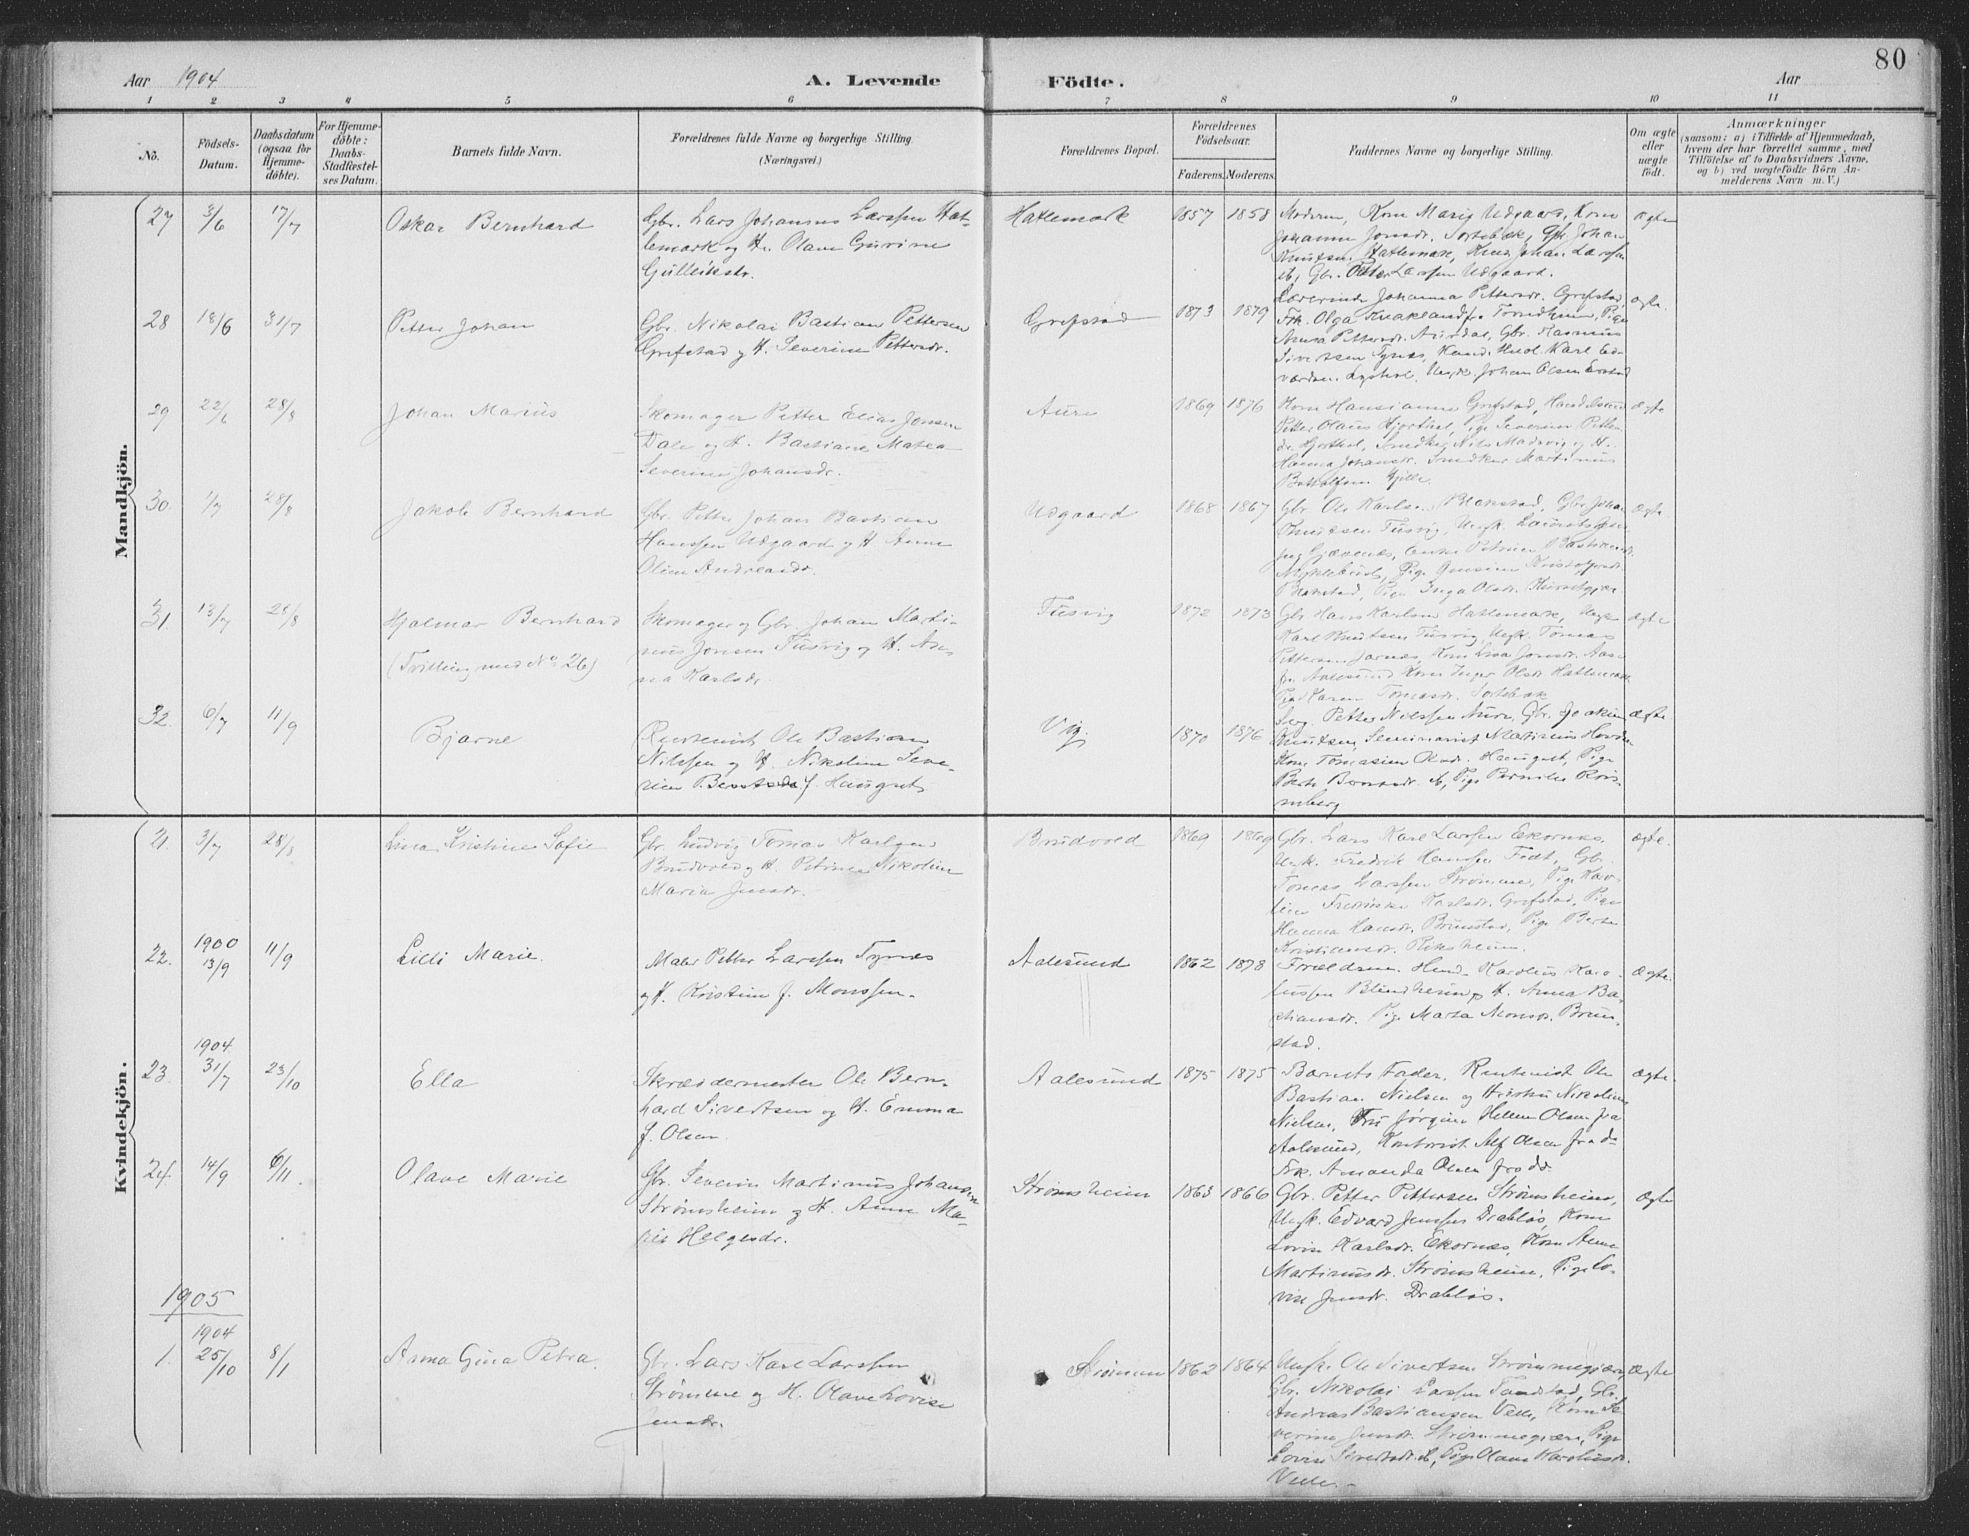 Aar 1904
A. Levende
Födte.
Aar
80
1 2 3 4 5 6 7 8 9 10 11
No.
Födsels-
Datum.
Daabsdatum
(ogsaa for
Hjemme-
döbte).
For Hjemme-
döbte:
Daabs-
Stadfæstel-
ses Datum.
Barnets fulde Navn.
Forældrenes fulde Navne og borgerlige Stilling.
(Næringsvei.)
Forældrenes Bopæl.
Forældrenes
Födselsaar.
Faderens. Moderens.
Faddernes Navne og borgerlige Stilling.
Om ægte
eller
uægte
födt.
Anmærkninger
(saasom: a) i Tilfælde af Hjemmedaab,
hvem der har forrettet samme, med
Tilföielse af to Daabsvidners Navne.
og b) ved uægtefödte Börn An-
melderens Navn m. V.)
Mandkjön.
27 3/6 17/7 Oskar Bernhard
Gbr. Lars Johannes Larssen Hat-
lemark og H. Olave Gurine
Gulleiksdr.
Hatlemark 1857 1858
Moderen, Kone Marie Udgaard, Kone
Johanne Jonsdr. Sortebæk, Gbr. Johan
Knutsen Hatlemark, Johan Larssen
Gbr. Petter Larssen Udgaard.
ægte
28 18/6 31/7 Petter Johan
Gbr. Nikolai Bastian Pettersen
Grefstad og H. Severine Pettersdr.
Grefstad 1873 1879
Lærerinde Johanna Pettersdr. Grefstad,
Frk. Olga fra Trondhjem, Pige
Anna Pettersdr. Aursdal, Gbr. Rasmus
Sivertsen Tynes, Karl Ed-
vardsen Ungk. Johan Olsen
ægte.
29 22/6 28/8 Johan Marius
Skomager Petter Elias Jonsen
Dale og H. Bastiane Matea
Severine Johansdr.
Aure 1869 1876
Kone Hansianna Grefstad,
Petter Olaus Pige Severine Petters-
Nils Madsvig og H.
Hanna Johansdr. Martinus
ægte
30. 1/7 28/8 Jakob Bernhard
Gbr. Petter Johan Bastian
Hanssen Udgaard og H. Anne
Oline Andreasdr.
Udgaard 1868 1867
Gbr. Ole Karlsen Blakstad, Gbr. Johan
Knutsen Tusvig, Ungk. Laurits
Enke Petrine Bastiansdr.
Myklebust, Pige Kristofersdr.
Blakstad, Pige Inga Olsdr.
ægte
31. 13/7 28/8 Hjalmar Bernhard
(Tvilling med No 26)
Skomager og Gbr. Johan Marti-
nus Jonsen Tusvig og H. An-
na Karlsdr.
Tusvig 1872 1873
Gbr. Hans Karlsen Hatlemark, Ungk.
Karl Knutsen Tusvig, Ungk. Tomas
Pettersen Jarnes, Kone Jonsdr. Aase
fr. Aalesund Kone Inger Olsdr. Hatlemark
Pige Karen Tomasdr. Sortebæk
ægte
32. 6/7 11/9 Bjarne
Rentenist Ole Bastian
Nilssen og H. Nikoline Seve-
rine Berntsdr. f. Haugset
Vig. 1870 1876
Petter Nilssen Aure, Gbr. Joakim
Knutsen, Seminarist Martinus
Kone Tomasine Olsdr. Haugset, Pige
Berte Berntsdr. Pige Pernille Kris-
ægte
Kvindekjön.
21. 3/7 28/8 Lina Kristine Sofie
Gbr. Ludvig Tomas Karlsen
Brudvold og H. Petrine Nikoline
Maria Jensdr.
Brudvold 1869 1869
Gbr. Lars Karl Larssen Ekornes,
Ungk. Fredrik Hanssen Gbr.
Tomas Larssen Strømme, Pige Karo-
line Karlsdr. Grefstad, Pige
Hanna Hansdr. Brunstad, Pige Berte
Kristiansdr. Riksheim.
ægte.
22. 1900
13/9 11/9 Lilli Marie.
Maler Petter Larssen Tynes
og H. Kristine f. Monssen.
Aalesund 1862 1878
Forældrene. Karolius Karo-
liussen Blindheim og H. Anna Ba-
stiansdr. Pige Marta Monsdr. Brun-
stad.
ægte.
23. 1904.
31/7 23/10 Ella
Skræddermester Ole Bern-
hard Sivertsen og H. Emma
f. Olsen
Aalesund 1875 1875
Barnets Fader, Rentenist Ole
Bastian Nielsen og Hustru Nikoline
Nielsen, Fru Jørgine Hellem Olsen fra
Aalesund, Kontorist Alf Olsen fra do
Frk. Amanda Olsen fra do.
ægte.
24. 14/9 6/11. Olave Marie
Gbr. Severin Martinus Johansen
Strømsheim og H. Anne Ma-
rie Helgesdr.
Strømsheim 1863 1866
Gbr. Petter Pettersen Strømsheim,
Ungk. Edvard Jenssen Drabløs, Kone
Lovise Karlsdr. Ekornes, Kone Anne
Martinusdr. Strømsheim, Pige Lo-
vise Jensdr. Drabløs.
ægte
1905
1. 1904
25/10 8/1 Anna Gina Petra.
Gbr. Lars Karl Larssen
Strømme og H. Olave Lovise
Jensdr.
Strømme 1862 1864
Ungk. Ole Sivertsen Strømmegjære,
Gbr. Nikolai Larssen Tandstad, Gbr.
Andreas Bastiansen Velle, Kone Se-
verine Jensdr. Strømmegjære, Pige
Lovise Sivertsdr. Pige Olave Karolusdr.
Velle.
ægte